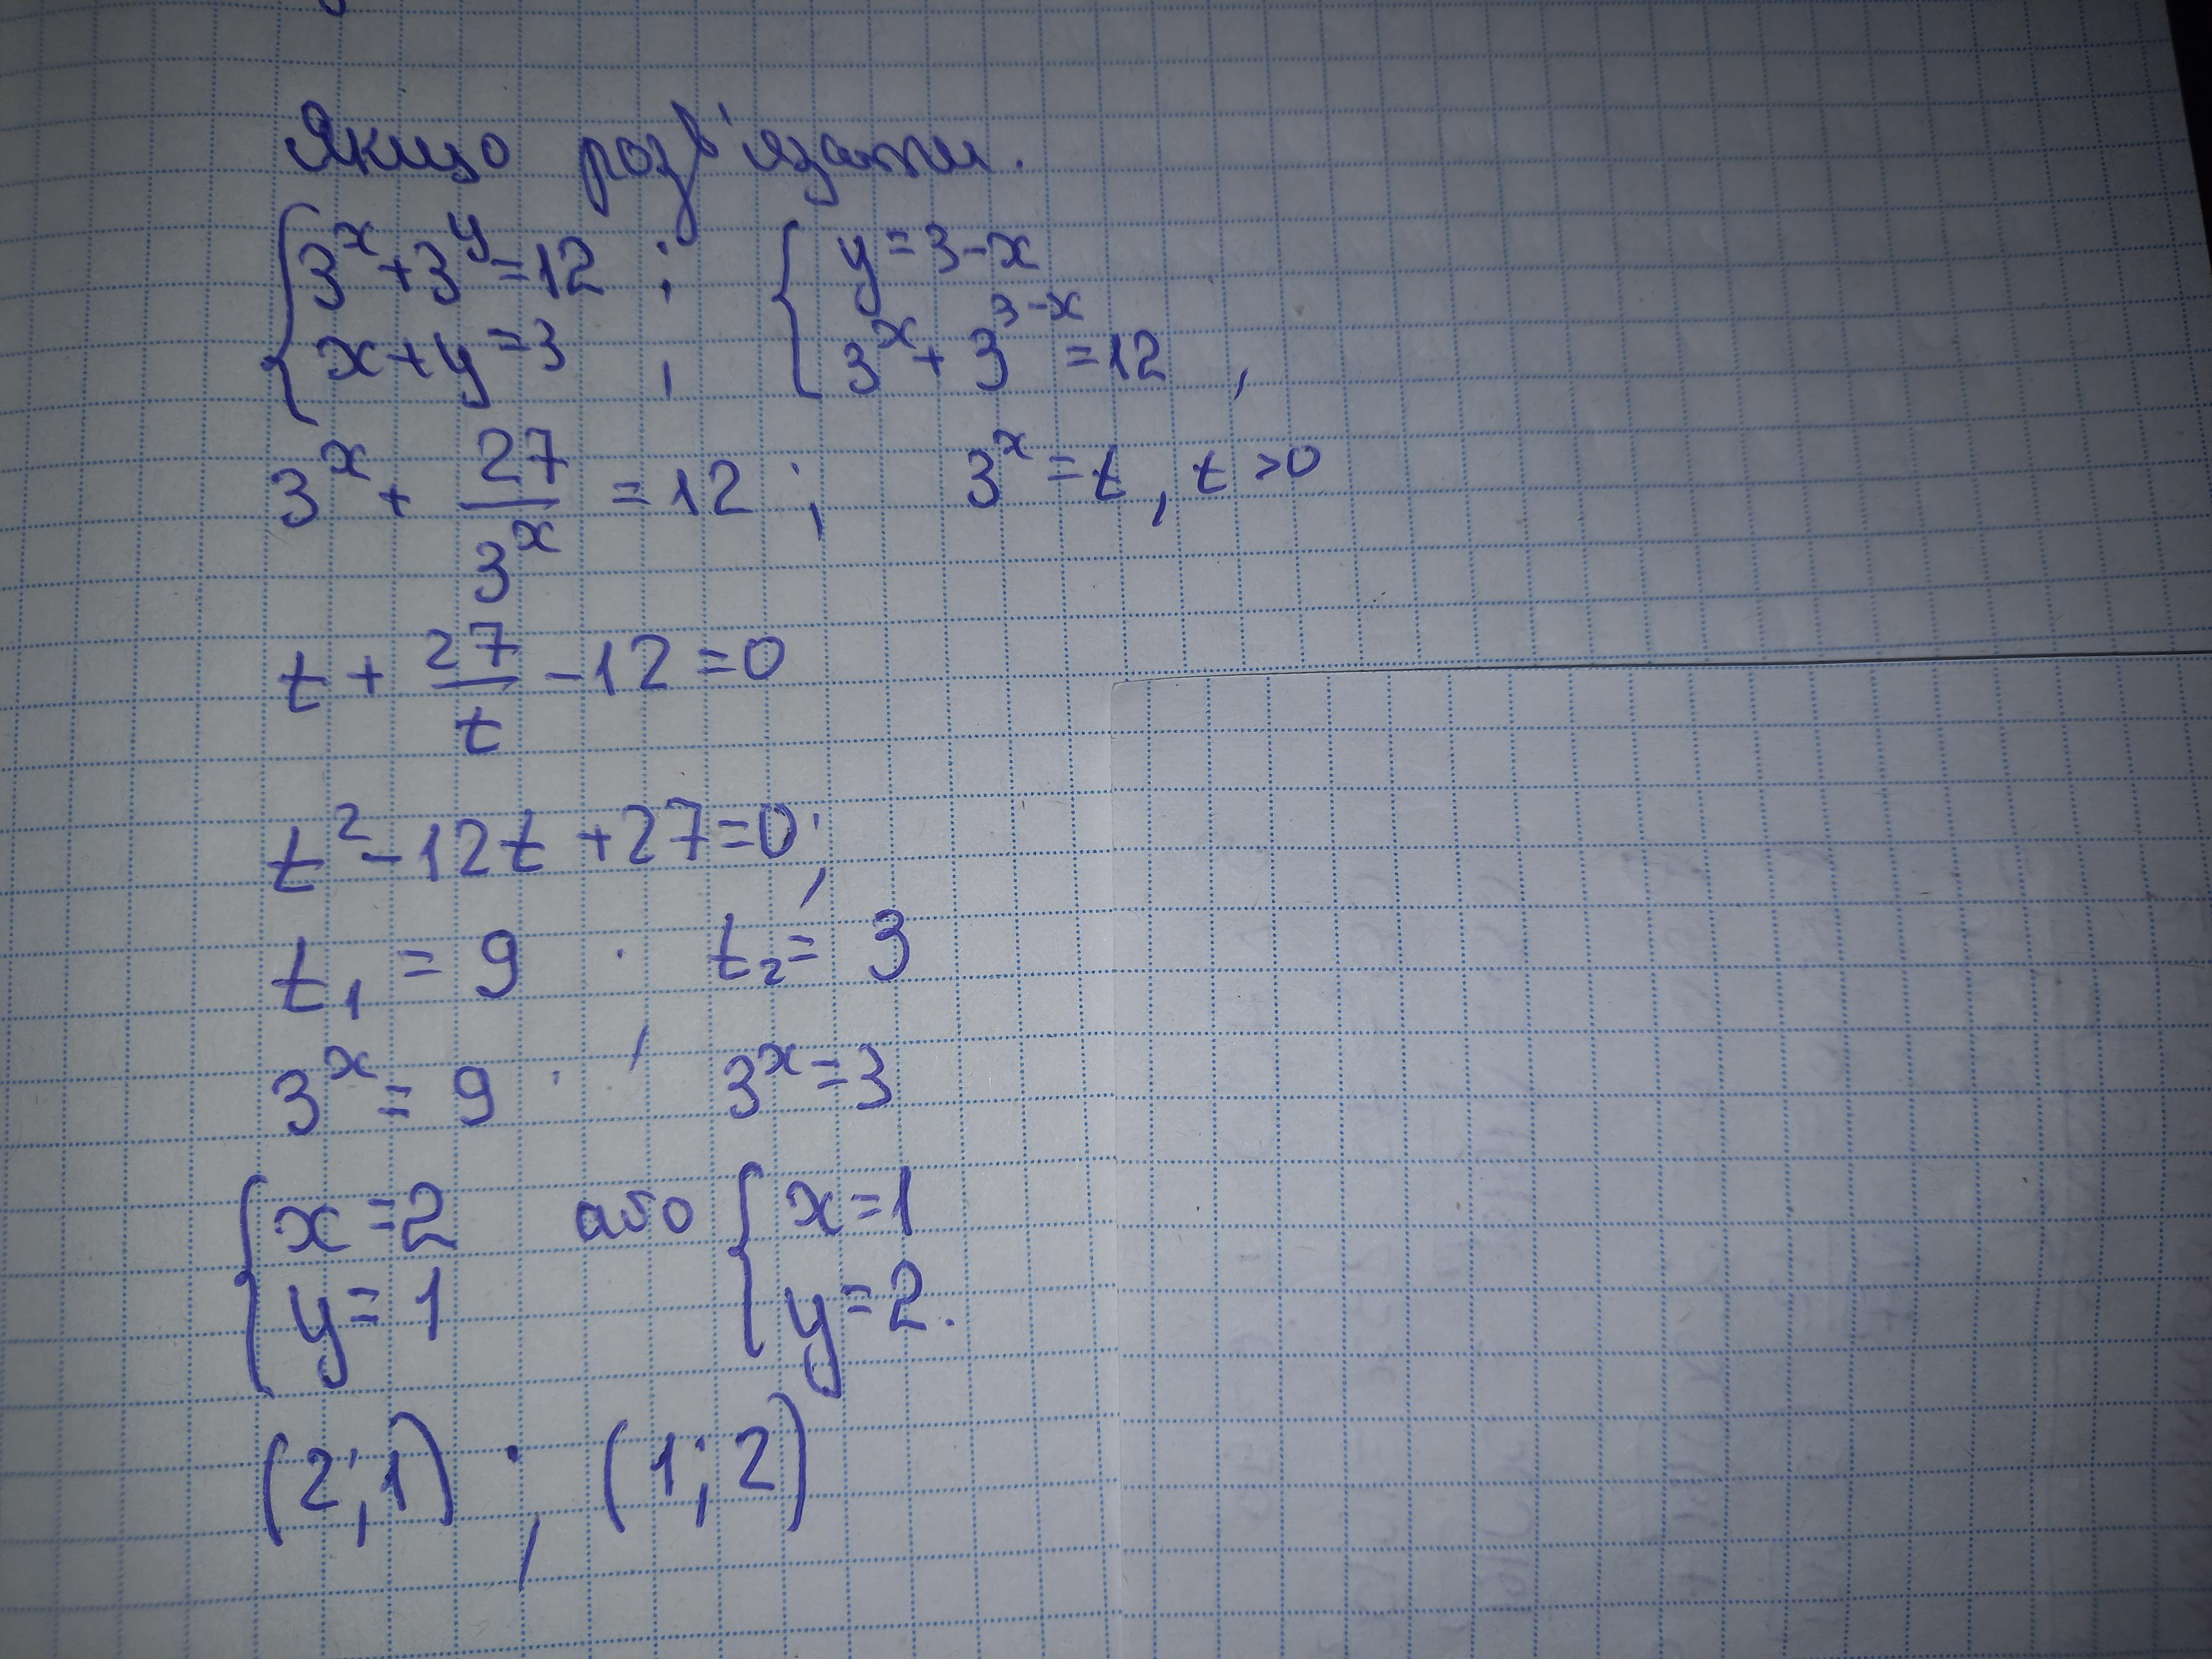 Якщо розв'язати.
{3^x+3^y=12 ; {y=3-x
{x+y=3 , {3^x+3^{3-x}=12 ,
3^x+27/3^x=12 ; 3^x=t, t>0
t+27/t-12=0
t²-12t+27=0;
t₁=9 ; t₂=3
3^x=9 ; 3^x=3
{x=2 або {x=1
{y=1 {y=2.
(2;1) ; (1;2)